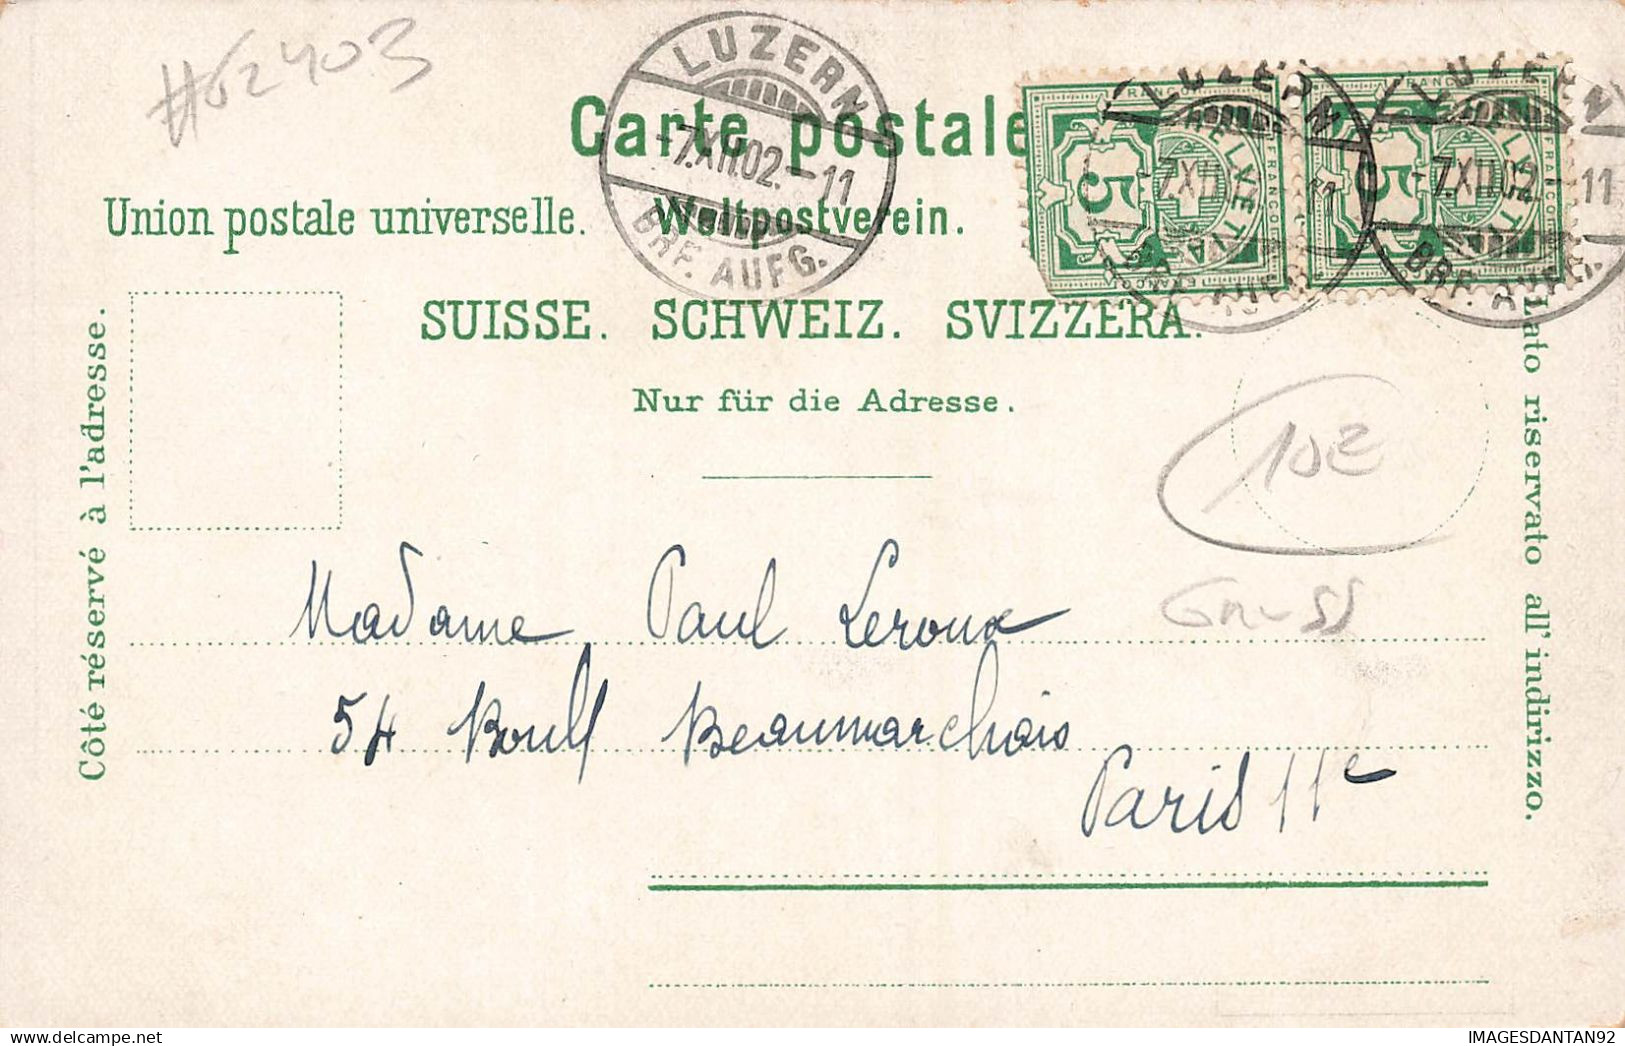 #62403
LUZERN
-7.XII.02.-11
BRF. AUFG.
Carte postale
Union postale universelle. Weltpostverein.
LUZERN
-7.XII
11
FRANCO
HELVETIA
5
LUZERN
-7.XII.02.-11
BRF. AUFG.
FRANCO
HELVETIA
5
SUISSE. SCHWEIZ. SVIZZERA.
Nur für die Adresse.
Côté réservé à l'adresse.
Lato riservato all' indirizzo.
10E
Gruss
Madame Paul Leroux
54 Boulf Beaumarchais
Paris 11e
IMAGESDANTAN92